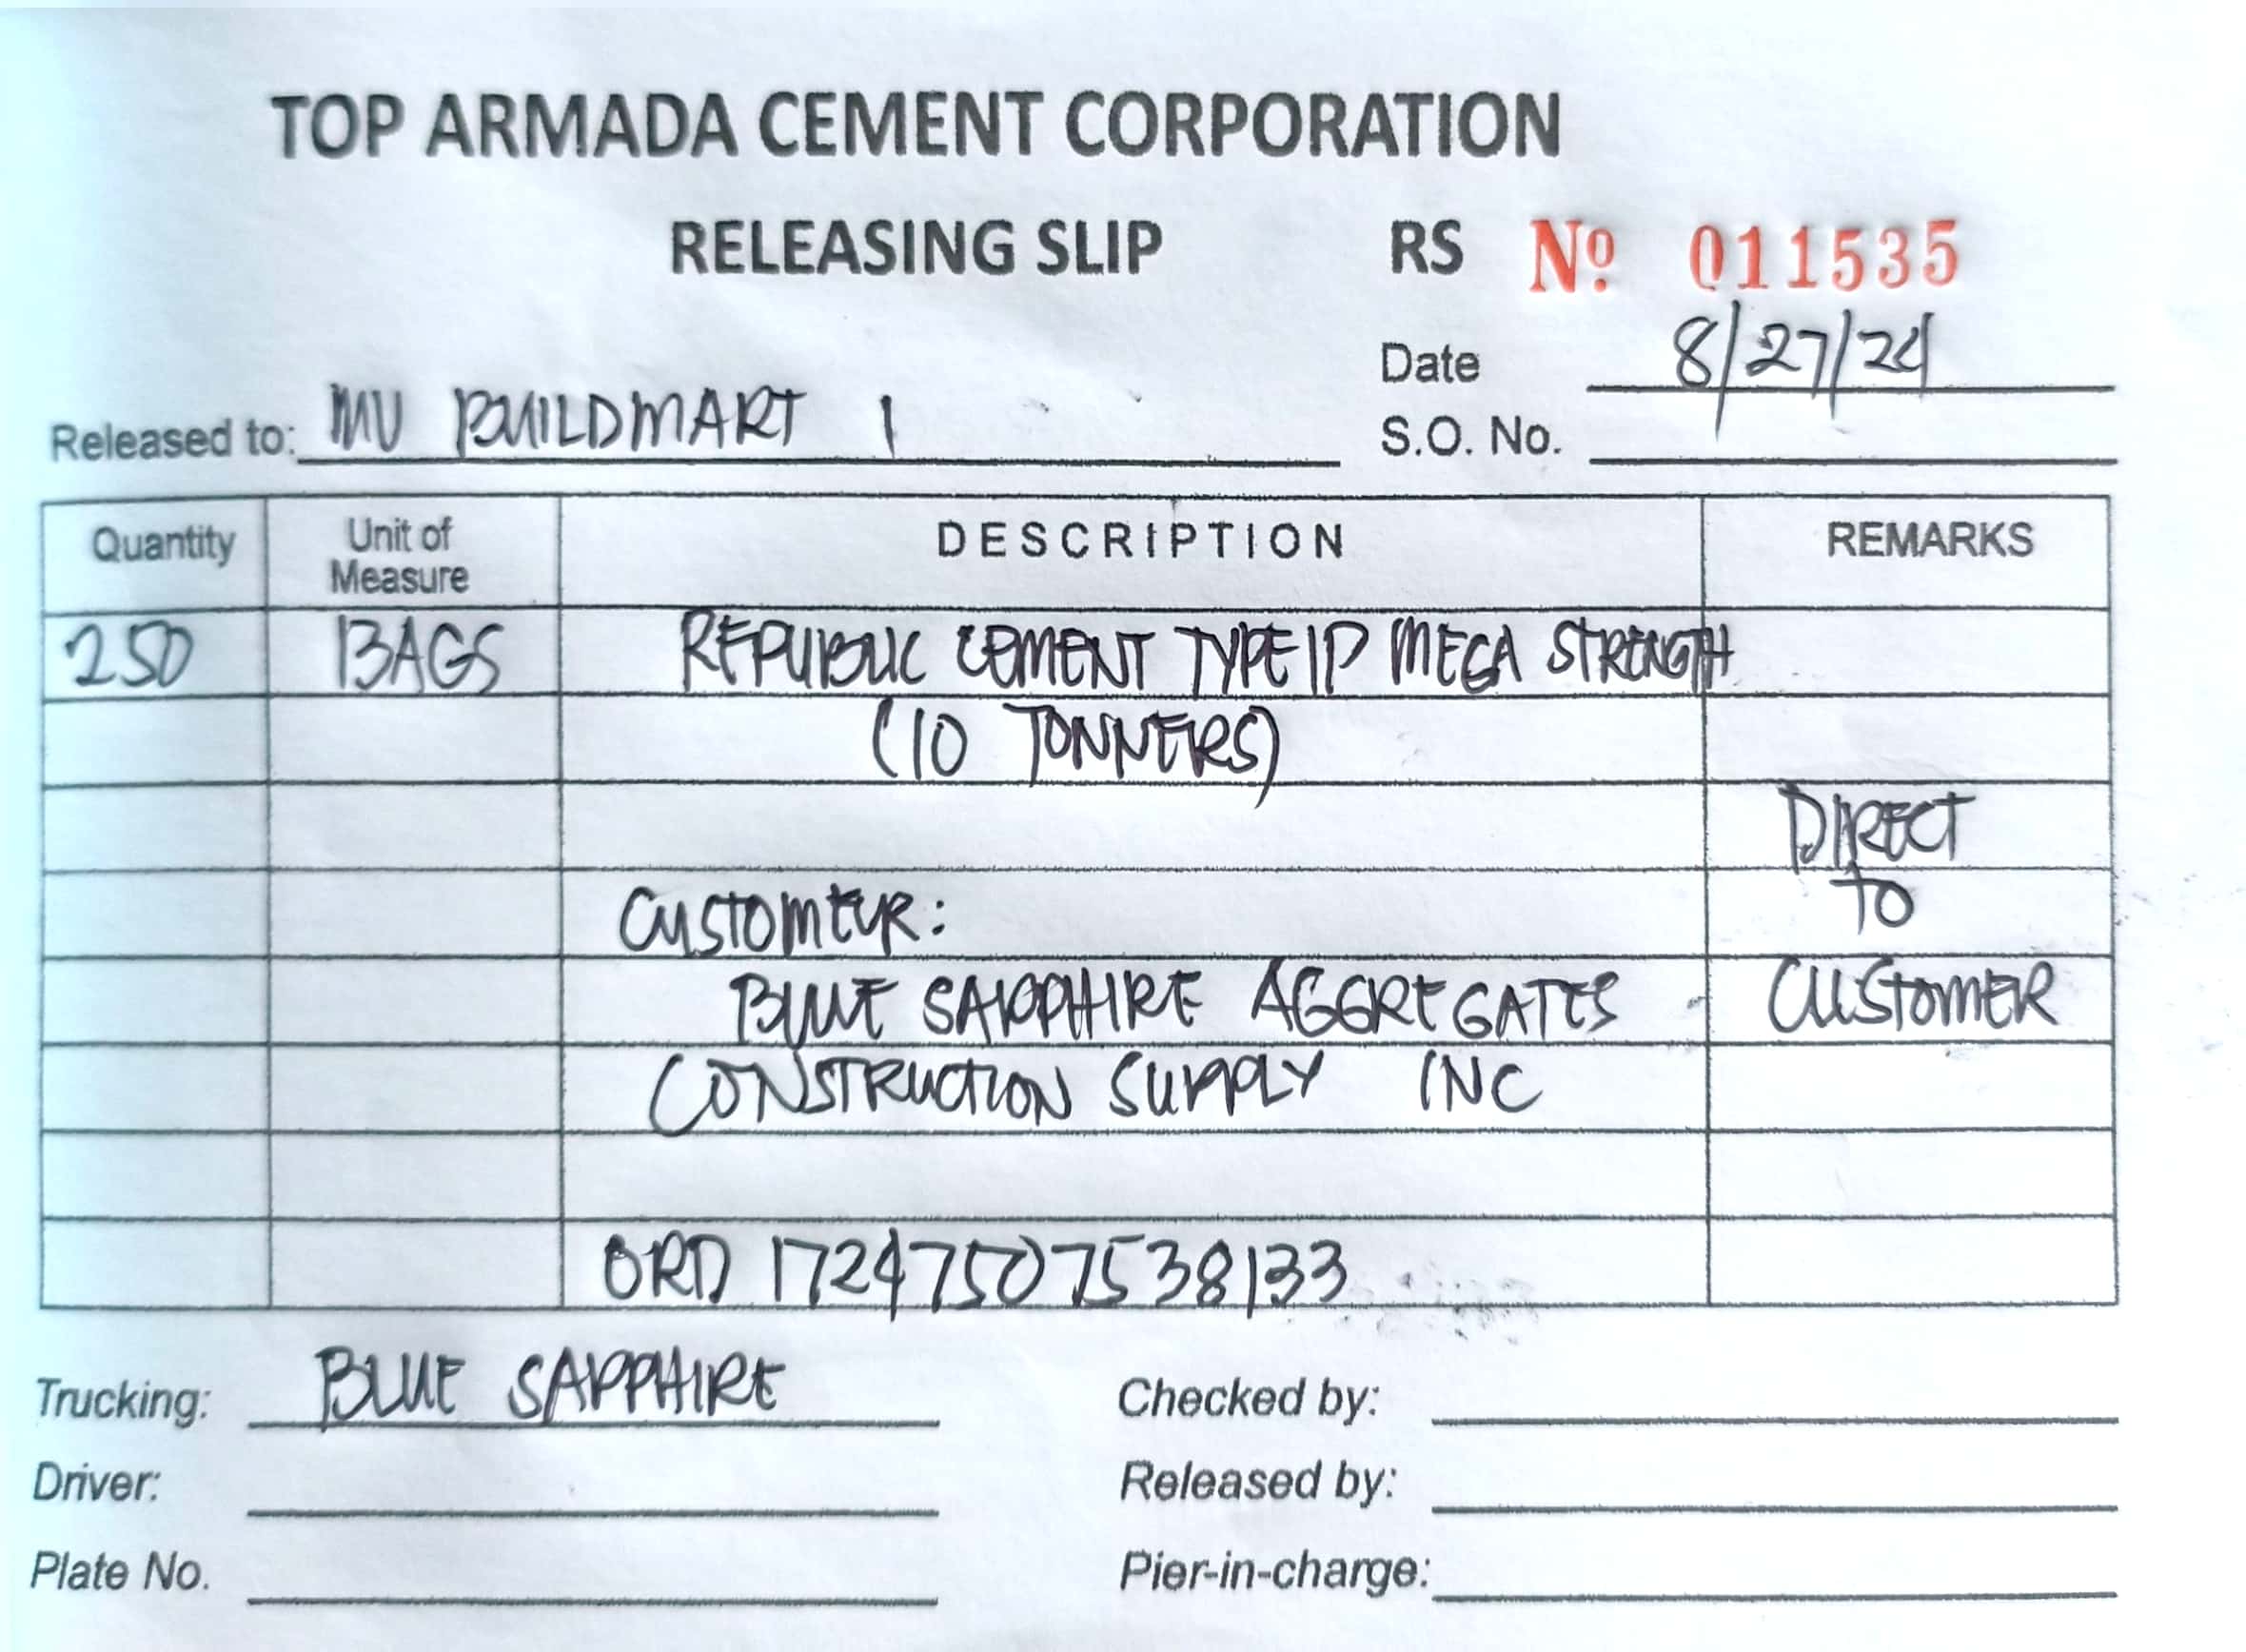 TOP ARMADA CEMENT CORPORATION
RELEASING SLIP RS Nº 011535
Date 8/27/24
Released to: MV BUILDMART 1
S.O. No.
Quantity Unit of Measure DESCRIPTION REMARKS
250 BAGS REPUBLIC CEMENT TYPE 1P MEGA STRENGTH
(10 TONNERS)
DIRECT
Customer: TO
BLUE SAPPHIRE AGGREGATES CUSTOMER
CONSTRUCTION SUPPLY INC
ORD 17247507538133
Trucking: BLUE SAPPHIRE Checked by:
Driver: Released by:
Plate No. Pier-in-charge: